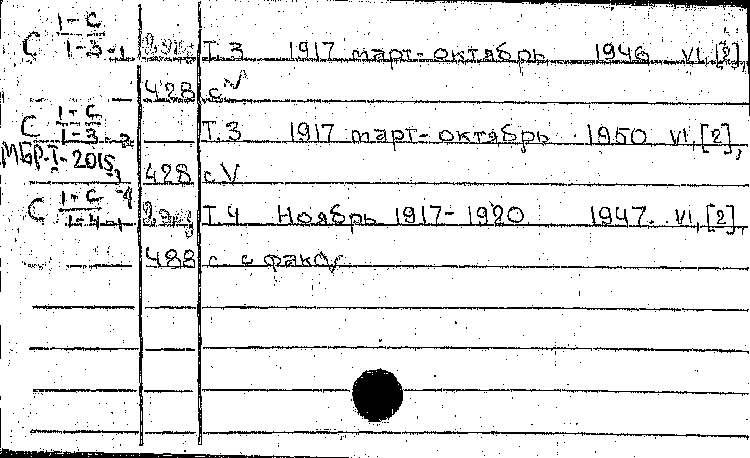 С 1-С / 1-3-1 Т.3 1917 март-октябрь 1946 VI,[2],
428 с √
С 1-С / 1-3-2 Т.3 1917 март-октябрь 1950 VI,[2],
МБР-I-2015, 428 с V
С 1-С / 1-4-1 Т.4 Ноябрь 1917-1920 1947. VI,[2],
488 с с факс